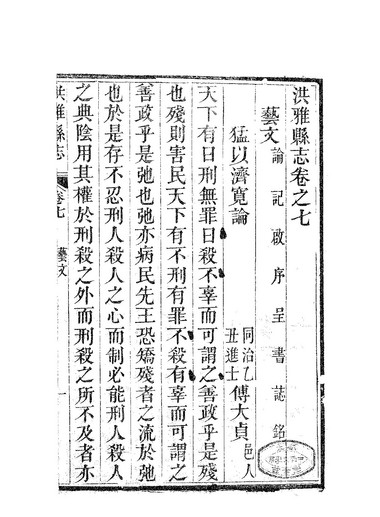 洪雅縣志卷之七
藝文論記啟序呈書誌銘
猛以濟寬論
同治乙丑進士傅大貞邑人
天下有日刑無罪日殺不辜而可謂之善政乎是殘
也殘則害民天下有不刑有罪不殺有辜而可謂之
善政乎是弛也弛亦病民先王恐矯殘者之流於弛
也於是存不忍刑人殺人之心而制必能刑人殺人
之典陰用其權於刑殺之外而刑殺之所不及者亦
洪雅縣志 卷七 藝文 一